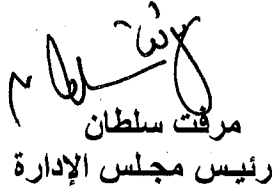 مرفت سلطان
رئيس مجلس الإدارة